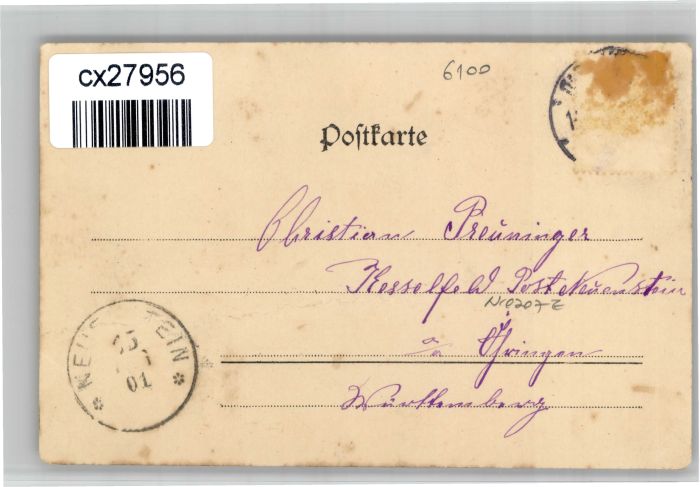 cx27956
6100
Postkarte
Christian Preuninger
Kesselfeld Post Neuenstein
a/ Öhringen
Württemberg
NEUENSTEIN
25
01